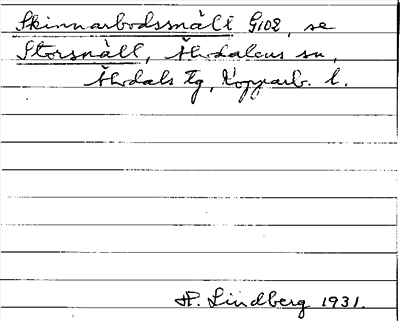 Skinnarbodssnält G102, se
Storsnält, Åhodalens sn,
Åhodals tg, Kopparb. l.
H. Lindberg 1931.